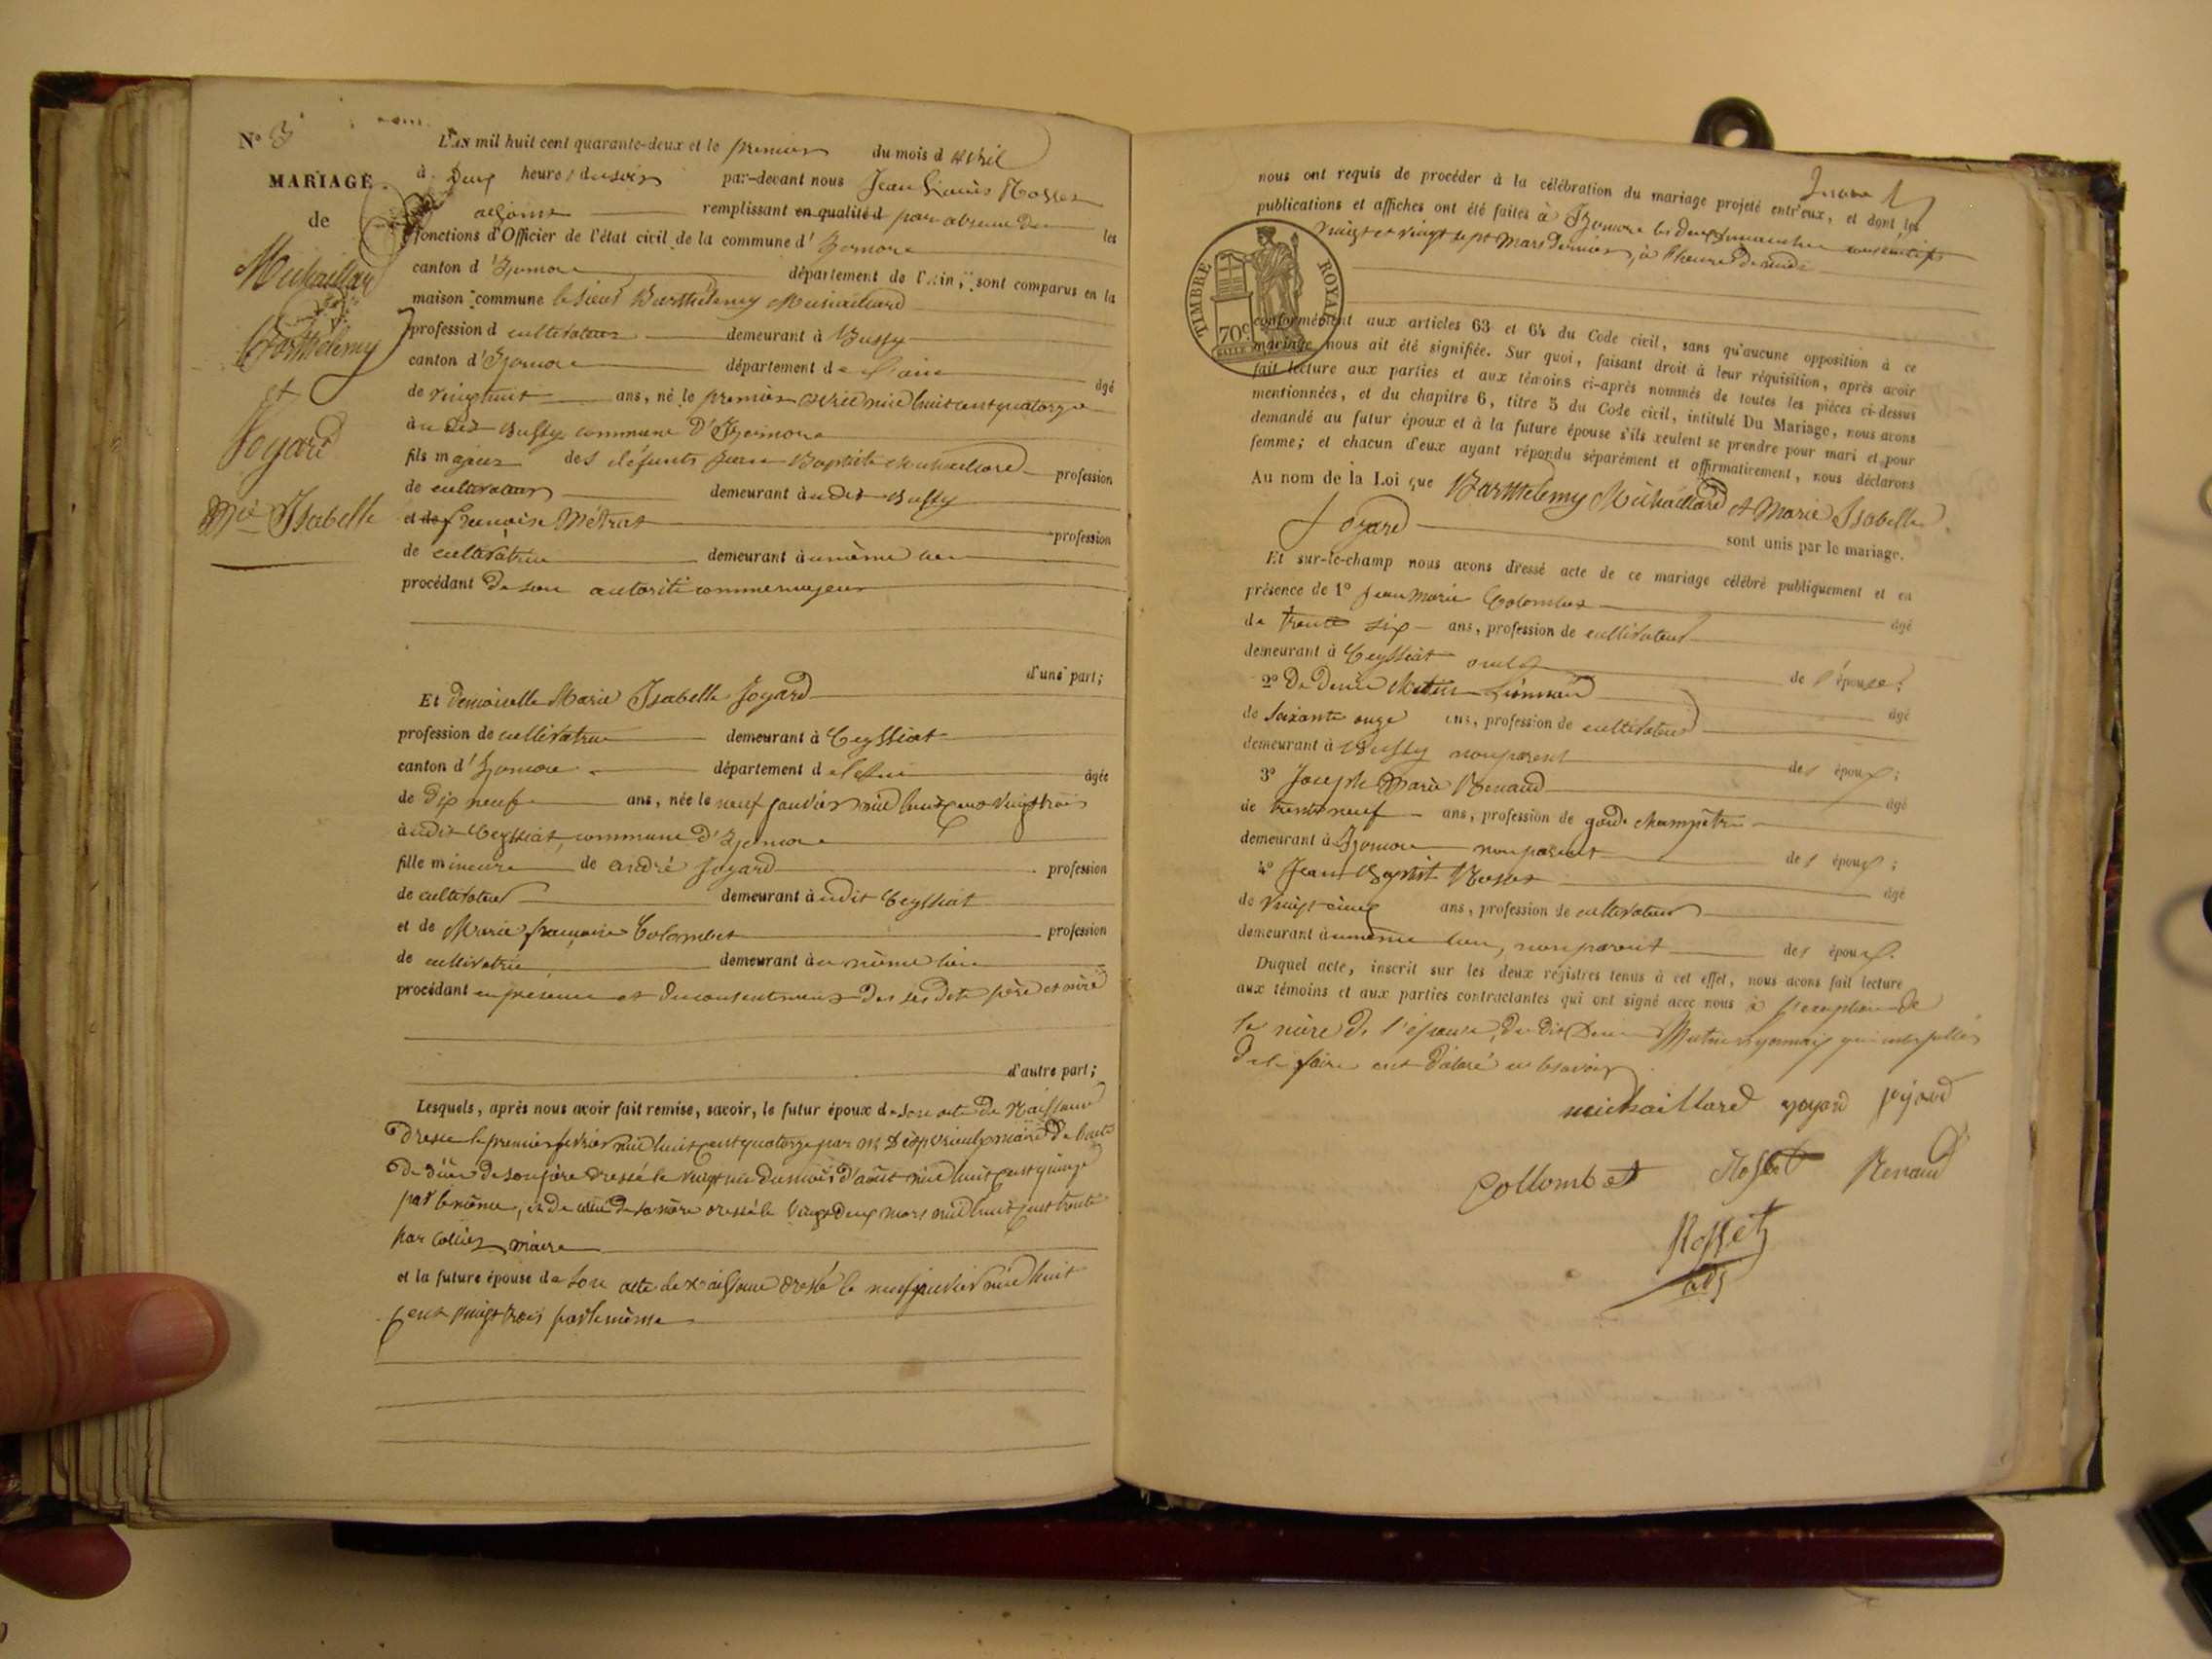 N° 3
MARIAGE
de
Michaillard
Barthelemy
et
Joyard
Mie Isabelle
L'AN mil huit cent quarante-deux et le premier du mois d'avril
à Deux heures du soir par-devant nous Jean Louis Rosset
adjoint remplissant en qualité d par absence du les
fonctions d'Officier de l'état civil de la commune d'Izernore
canton d'Izernore département de l'Ain, sont comparus en la
maison commune le sieur Barthélemy Michaillard
profession d cultivateur demeurant à Bussy
canton d'Izernore département de l'ain âgé
de vingt huit ans, né le premier avril mil huit cent quatorze
au dit Bussy commune d'Izernore
fils majeur des défunts Jean Baptiste Michaillard profession
de cultivateur demeurant au dit Bussy
et de françoise Métrat profession
de cultivatrice demeurant au même lieu
procédant de son autorité comme majeur
d'une part;
Et demoiselle Marie Isabelle Joyard
profession de cultivatrice demeurant à Ceyssiat
canton d'Izernore département de l'ain âgée
de dix neuf ans, née le neuf janvier mil huit cent vingt trois
audit Ceyssiat, commune d'Izernore
fille mineure de andré Joyard profession
de cultivateur demeurant audit Ceyssiat
et de Marie françoise Colombet profession
de cultivatrice demeurant au même lieu
procédant en présence et du consentement des ses dits père et mère
d'autre part;
Lesquels, après nous avoir fait remise, savoir, le futur époux de son acte de Naissance
dressé le premier mil huit cent quatorze par Mr maire de l'acte
de décès de son père dressé le vingt du mois d'août mil huit cent quinze
par le même, et de celui de sa mère dressé le vingt deux mars mil huit cent trente
par maire
et la future épouse de son acte de naissance dressé le neuf janvier mil huit
cent vingt trois par le même
nous ont requis de procéder à la célébration du mariage projeté entr'eux, et dont les
publications et affiches ont été faites à Izernore les deux dimanches consécutifs
vingt et vingt sept Mars dernier, à l'heure de midi
TIMBRE ROYAL
70c
conformément aux articles 63 et 64 du Code civil, sans qu'aucune opposition à ce
mariage nous ait été signifiée. Sur quoi, faisant droit à leur réquisition, après avoir
fait lecture aux parties et aux témoins ci-après nommés de toutes les pièces ci-dessus
mentionnées, et du chapitre 6, titre 5 du Code civil, intitulé Du Mariage, nous avons
demandé au futur époux et à la future épouse s'ils veulent se prendre pour mari et pour
femme; et chacun d'eux ayant répondu séparément et affirmativement, nous déclarons
Au nom de la Loi que Barthelemy Michaillard et Marie Isabelle
Joyard sont unis par le mariage.
Et sur-le-champ nous avons dressé acte de ce mariage célébré publiquement et en
présence de 1° Jean Marie Colombet âgé
de trente six ans, profession de cultivateur
demeurant à Ceyssiat oncle de l'épouse;
2° De Denis âgé
de soixante onze ans, profession de cultivateur
demeurant à Bussy non parent des époux;
3° Joseph Marie Renaud âgé
de trente neuf ans, profession de garde champêtre
demeurant à Izernore non parent des époux;
4° Jean Baptiste Rosset âgé
de vingt cinq ans, profession de cultivateur
demeurant au même lieu, non parent des époux.
Duquel acte, inscrit sur les deux registres tenus à cet effet, nous avons fait lecture
aux témoins et aux parties contractantes qui ont signé avec nous à l'exception de
la mère de l'épouse, du dit Denis qui interpellés
de le faire ont déclaré ne le savoir
michaillard joyard joyard
Collombet Rosset Renaud
Rosset
adj